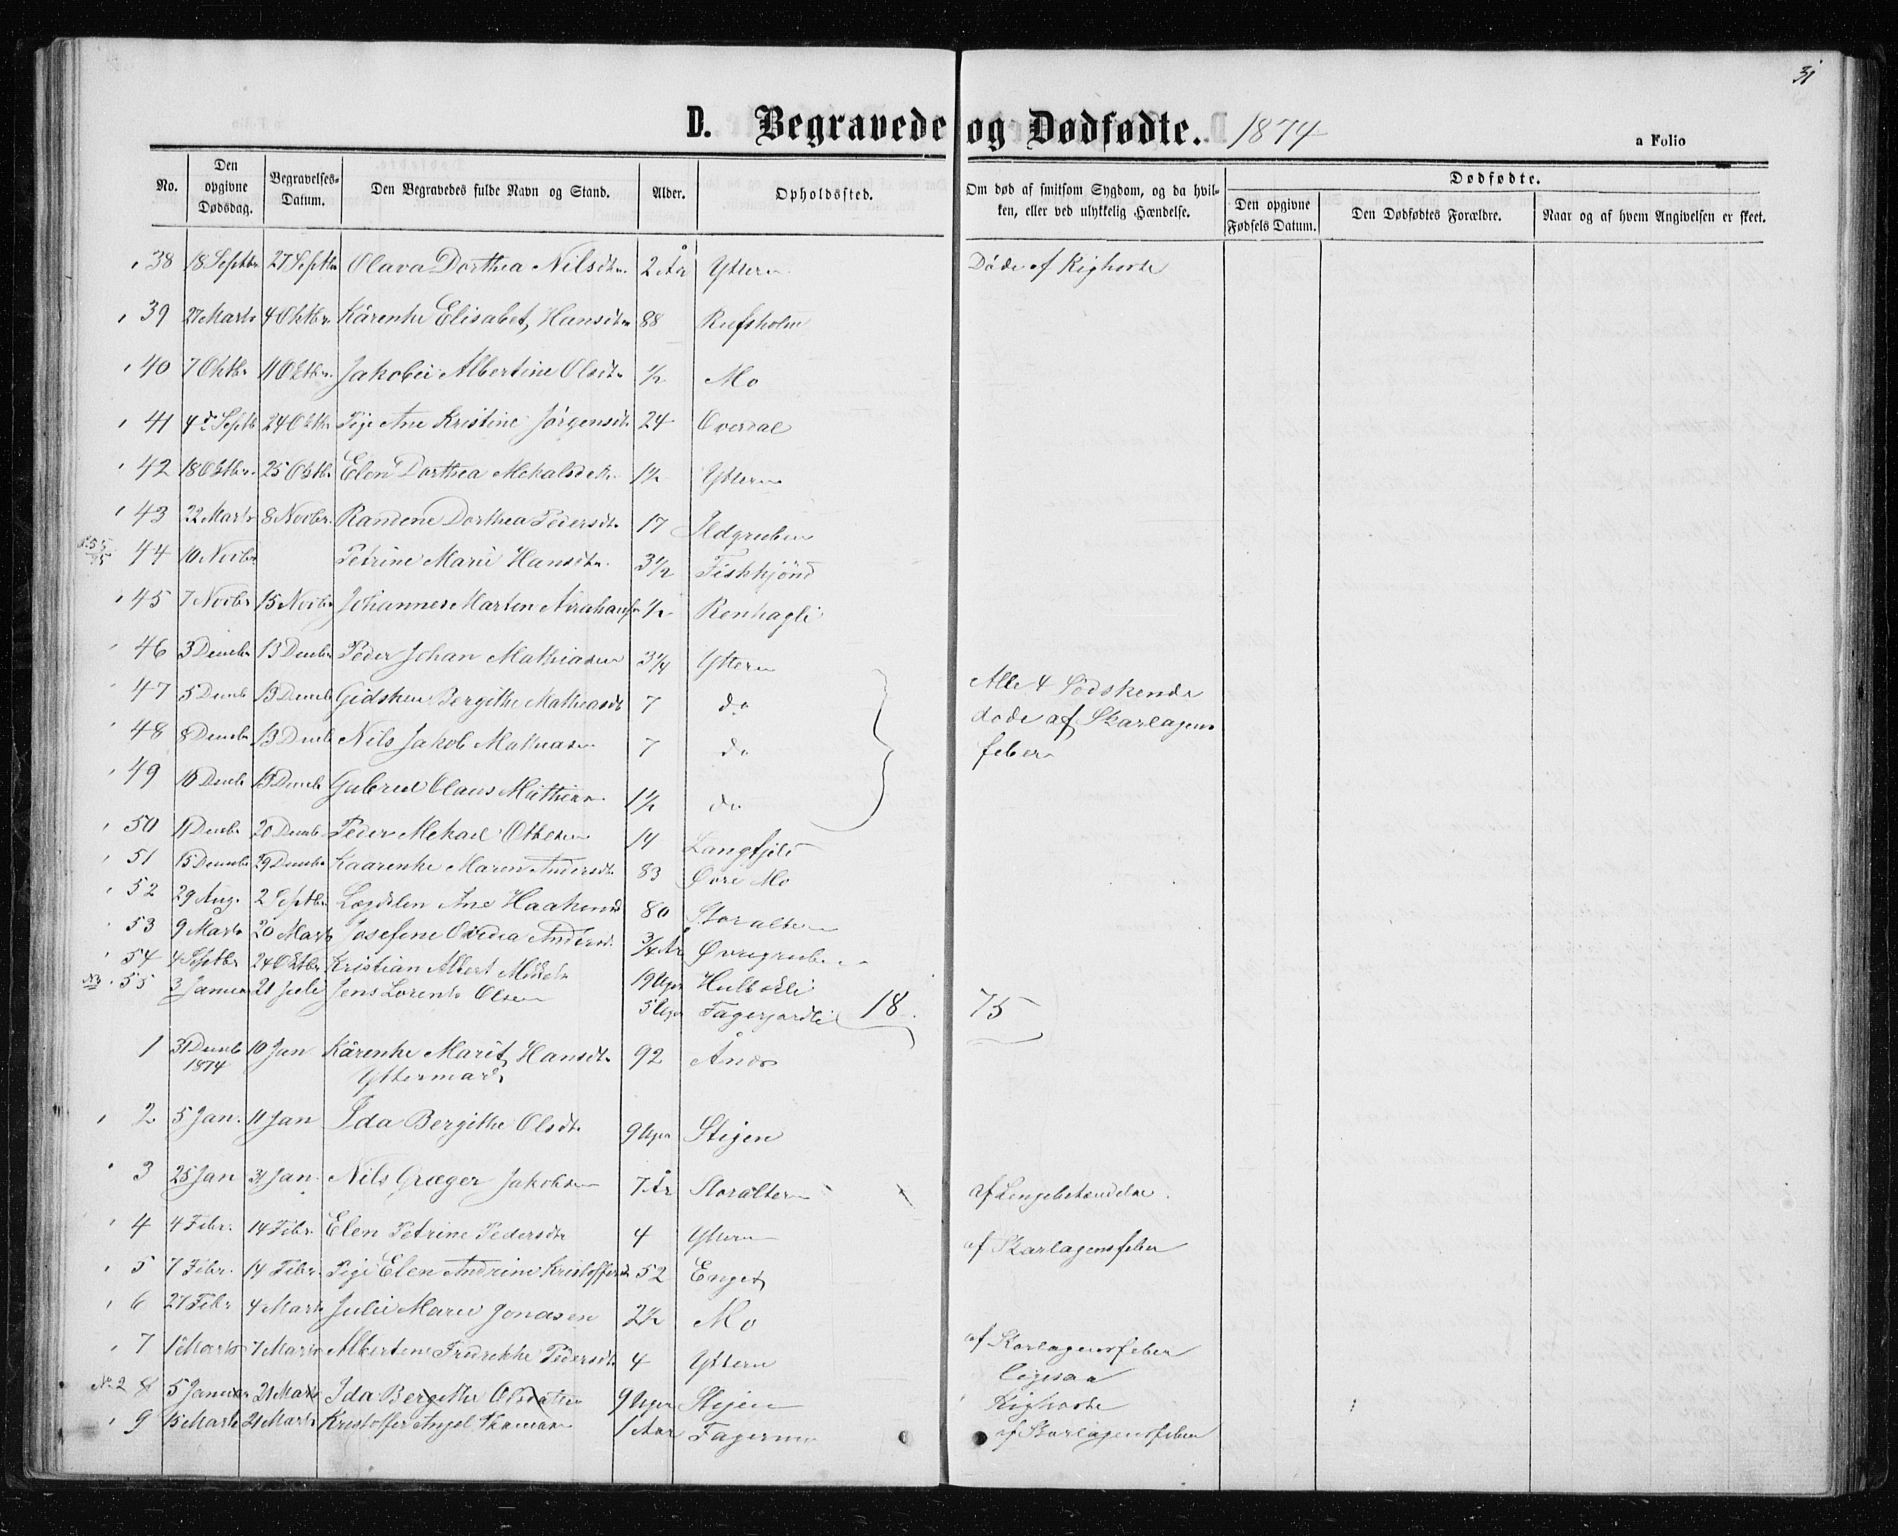 31
D. Begravede og Dødfødte. 1874
a Folio
No. Den opgivne Dødsdag. Begravelses-Datum. Den Begravedes fulde Navn og Stand. Alder. Opholdssted. Om død af smitsom Sygdom, og da hvilken, eller ved ulykkelig Hændelse. Dødfødte. Den opgivne Fødsels Datum. Den Dødfødtes Forældre. Naar og af hvem Angivelsen er skeet.
38 18 Septbr 27 Septbr Olava Dorthea Nilsdtr 2 År Yttern Døde af Kighoste
39 27 Marts 4 Oktbr. Kårenke Elisabet Hansdtr 88 Rufsholm
40 7 Oktbr 11 Oktbr. Jakobie Albertine Olsdtr ½ Mo
41 4de Septb 24 Oktbr Pige Ane Kristine Jørgensdtr 24 Overdal
42 18 Oktbr. 25 Oktbr Elen Dorthea Mekalsdtr 1½ Yttern
43 22 Marts 8 Novbr. Randine Dorthea Pedersdtr 17 Ildgruben
44 10 Novbr Petrine Marie Hansdtr. 3½ Fiskkjönd
45 7 Novbr 15 Novbr Johannes Marten Abrahams ½ Renhagli
46 3 Decmbr 13 Decmbr Peder Johan Mathiasen 3¼ Yttern
47 5 Decmb 13 Decmb Gidsken Bergithe Matheasdt 7 do Alle 4 Sødskende
48 8 Decmb 13 Decmb Nils Jakob Mathiasen 7 do døde af Skarlagens
feber
49 10 Decmb 13 Decmb Gabriel Olaus Mathiasn 1½ do
50 11 Decmb 20 Decmb. Peder Mekael Othesen 14 Langfjeld
51 15 Decmb 29 Decmbr Kaarenke Maren Andersdt 83 Øvre Mo
52 29 Aug. 2 Septbr Lægdslem Ane Haakensd 80 Storaltern
53 9 Marts 20 Marts Josefine Ovedia Anders. ¾ År Øvregruben
54 4 Septbr 24 Oktbr Kristian Albert Mikels 19 Uger Hulbekli
55 3 Januar 21 Juli Jens Lorents Olsen 5 Uger Fagerjordli
18 75
1 31 Decmb 1874 10 Jan Kårenke Marit Hansdtr 92 Ånes
Yttermark
2 5 Jan. 11 Jan Ida Bergithe Olsdtr 9 Uger Stigen
3 25 Jan 31 Jan. Nils Græger Jakobsen 7 År Storaltern af Lungebetændelse.
4 4 Febr. 14 Febr. Elen Petrine Pedersdtr 4 Yttern af Skarlagensfeber
5 7 Febr. 14 Febr. Pige Elen Andrine Kristoffersd 52 Enget
6 27 Febr 4 Marts Julie Marie Jonasen 2½ Mo
7 1 Marts 7 Marts Albertine Fredrikke Pedersdtr 4 Yttern af Skarlagensfeber
ligesaa
No 2 8 5 Januar 21 Marts Ida Bergithe Olsdatter 9 Uger Stigen Kighoste
9 15 Marts 21 Marts Kristoffer Angel Thomas 1 Aar Fagermo af Skarlagensfeber